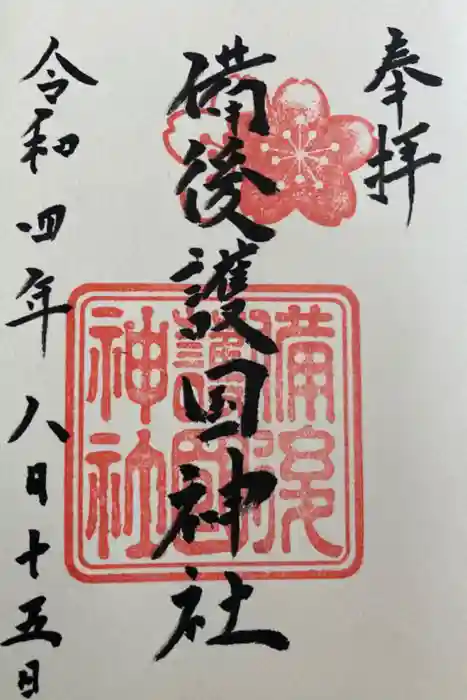 奉拝
備後護国神社
備後
護國
神社
令和四年八日十五日